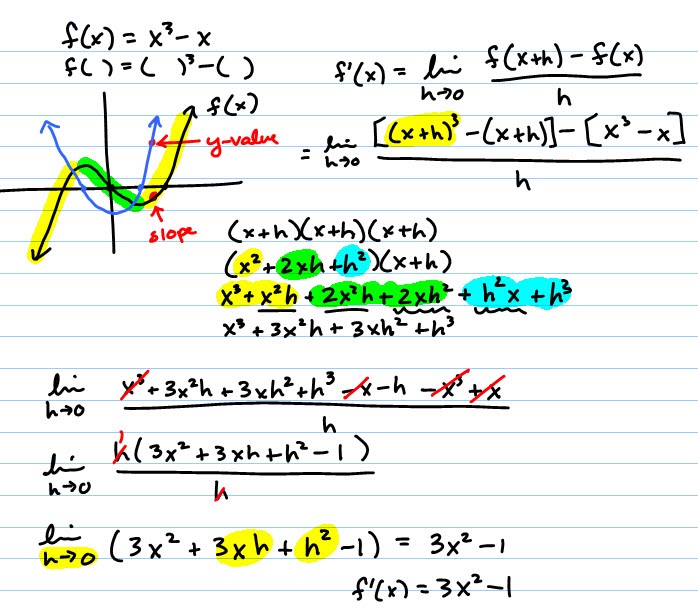 f(x) = x³ - x
f( ) = ( )³ - ( )
f'(x) = lim h→0 f(x+h) - f(x) / h
f(x)
y-value
slope
= lim h→0 [(x+h)³ - (x+h)] - [x³ - x] / h
(x+h)(x+h)(x+h)
(x² + 2xh + h²)(x+h)
x³ + x²h + 2x²h + 2xh² + h²x + h³
x³ + 3x²h + 3xh² + h³
lim h→0 x³ + 3x²h + 3xh² + h³ - x - h - x³ + x / h
lim h→0 h(3x² + 3xh + h² - 1) / h
1
lim h→0 (3x² + 3xh + h² - 1) = 3x² - 1
f'(x) = 3x² - 1